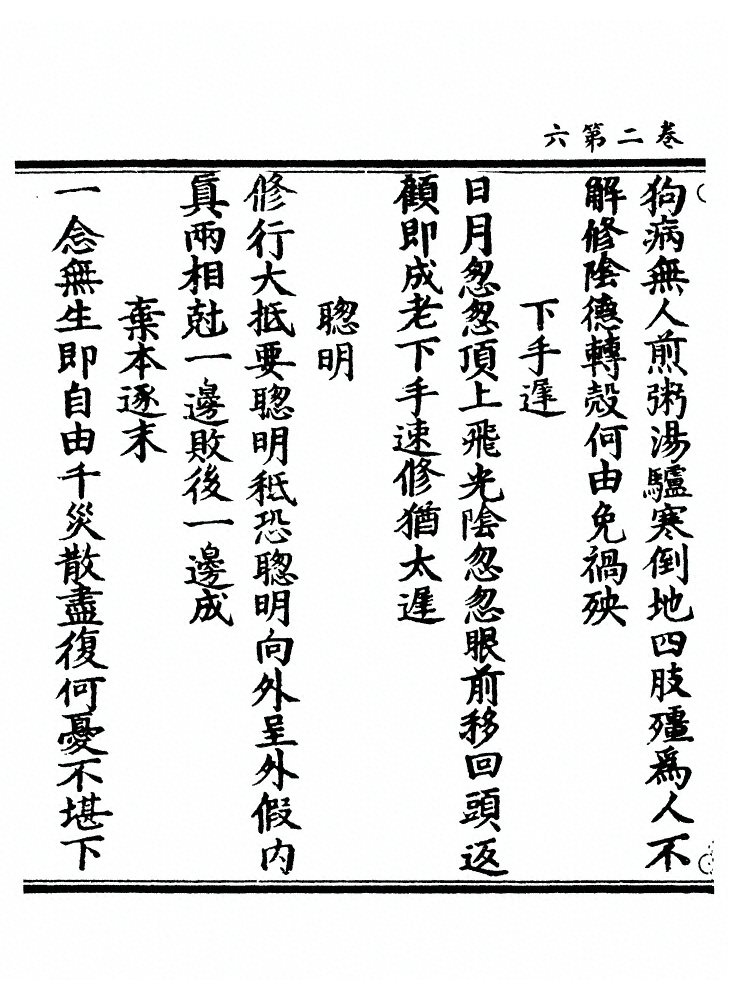 卷二第六
狗病無人煎粥湯驢寒倒地四肢殭為人不
解修陰德轉殼何由免禍殃
下手遲
日月忽忽頂上飛光陰忽忽眼前移回頭返
顧即成老下手速修猶太遲
聰明
修行大抵要聰明秪恐聰明向外呈外假内
眞兩相尅一邊敗後一邊成
棄本逐末
一念無生即自由千災散盡復何憂不堪下